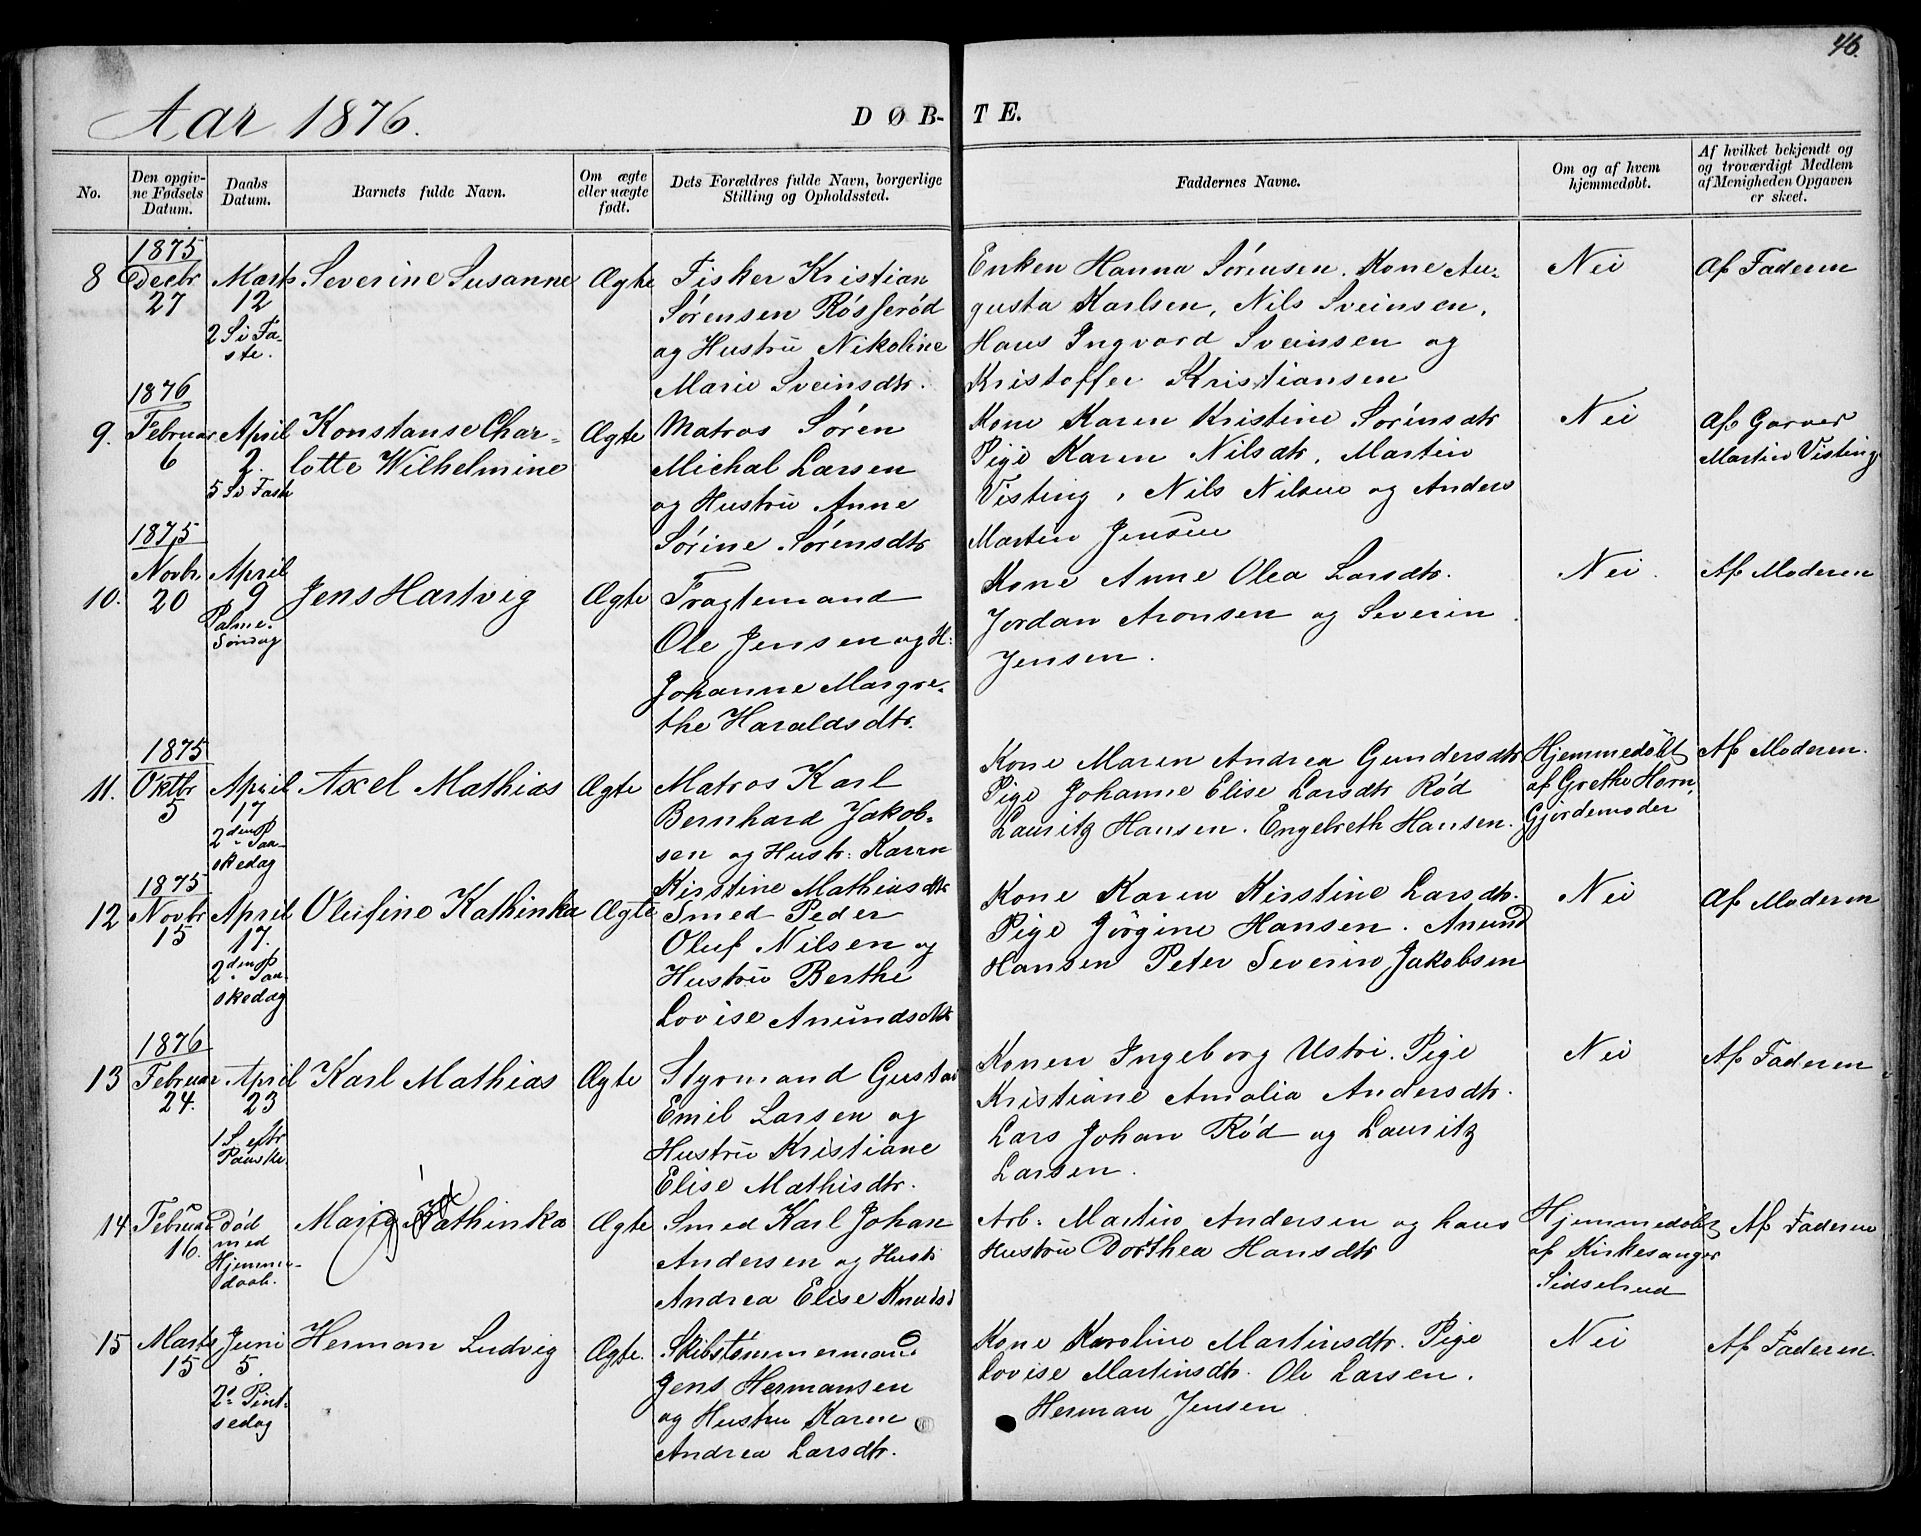 46.
Aar 1876.
DØB-TE.
No.
Den opgiv-
ne Fødsels
Datum.
Daabs
Datum.
Barnets fulde Navn.
Om ægte
eller uægte
født.
Dets Forældres fulde Navn, borgerlige
Stilling og Opholdssted.
Faddernes Navne.
Om og af hvem
hjemmedøbt.
Af hvilket bekjendt og
og troværdigt Medlem
af Menigheden Opgaven
er skeet.
8
1875
Decbr
27
Marts
12
2 S i Fa-
ste.
Severine Susanne
Ægte
Fisker Kristian
Sørensen Røsserød
og Hustru Nikoline
Marie Sveinsdtr.
Enken Hanna Sørensen. Kone Au-
gusta Karlsen, Nils Sveinsen,
Hans Ingvard Sveinsen og
Kristoffer Kristiansen
Nei
Af Faderen
9.
1876
Februar
6
April
2.
5 S i Fast
Konstanse Char-
lotte Wilhelmine
Ægte
Matros Søren
Michal Larsen
og Hustru Anne
Sørine Sørensdtr
Kone Karen Kristine Sørensdtr
Pige Karen Nilsdtr, Martin
Visting, Nils Nilsen og Anders
Martin Jensen
Nei
Af Garver
Martin Visting
10.
1875
Novbr
20
April
9
Palme-
Søndag
Jens Hartvig
Ægte
Fragtemand
Ole Jensen og H:
Johanne Margre-
the Haraldsdtr.
Kone Anne Olea Larsdtr.
Jordan Aronsen og Severin
Jensen.
Nei.
Af Moderen
11.
1875
Oktbr
5
April
17
2den Paa-
skedag
Axel Mathias
Ægte
Matros Karl
Bernhard Jakob-
sen og Hustr: Karen
Kirstine Mathiasdtr
Kone Maren Andrea Gundersdtr
Pige Johanne Elise Larsdtr Rød
Lauritz Hansen. Engebreth Hansen.
Hjemmedøbt
af Grethe Horn,
Gjordemoder
Af Moderen.
12
1875
Novbr
15
April
17.
2den Paa-
skedag
Olufine Kathinka
Ægte
Smed Peder
Oluf Nilsen og
Hustru Berthe
Lovise Anundsdtr
Kone Karen Kirstine Larsdtr.
Pige Jørgine Hansen. Anund
Hansen Peter Severin Jakobsen
Nei
Af Moderen
13
1876
Februar
24.
April
23
1 S. eftr
Paaske.
Karl Mathias
Ægte
Styrmand Gustav
Emil Larsen og
Hustru Kristiane
Elise Mathisdtr.
Konen Ingeborg Ustri. Pige
Kristiane Amalia Andersdtr.
Lars Johan Rød og Lauritz
Larsen.
Nei
Af Faderen
14
Februar
16.
Død
med
Hjemme-
daab.
Marie Kathinka
Ægte
Smed Karl Johan
Andersen og Hustr
Andrea Elise Knudsd
Arb. Martin Andersen og hans
Hustru Dorthea Hansdtr
Hjemmedøbt
af Kirkesanger
Sidselrud
Af Faderen
15
Marts
15
Juni
5.
2d Pint-
sedag
Herman Ludvig
Ægte.
Skibstømmermand
Jens Hermansen
og Hustru Karen
Andrea Larsdtr.
Kone Karoline Martinsdtr. Pige
Lovise Martinsdtr. Ole Larsen.
Herman Jensen
Nei
Af Faderen.